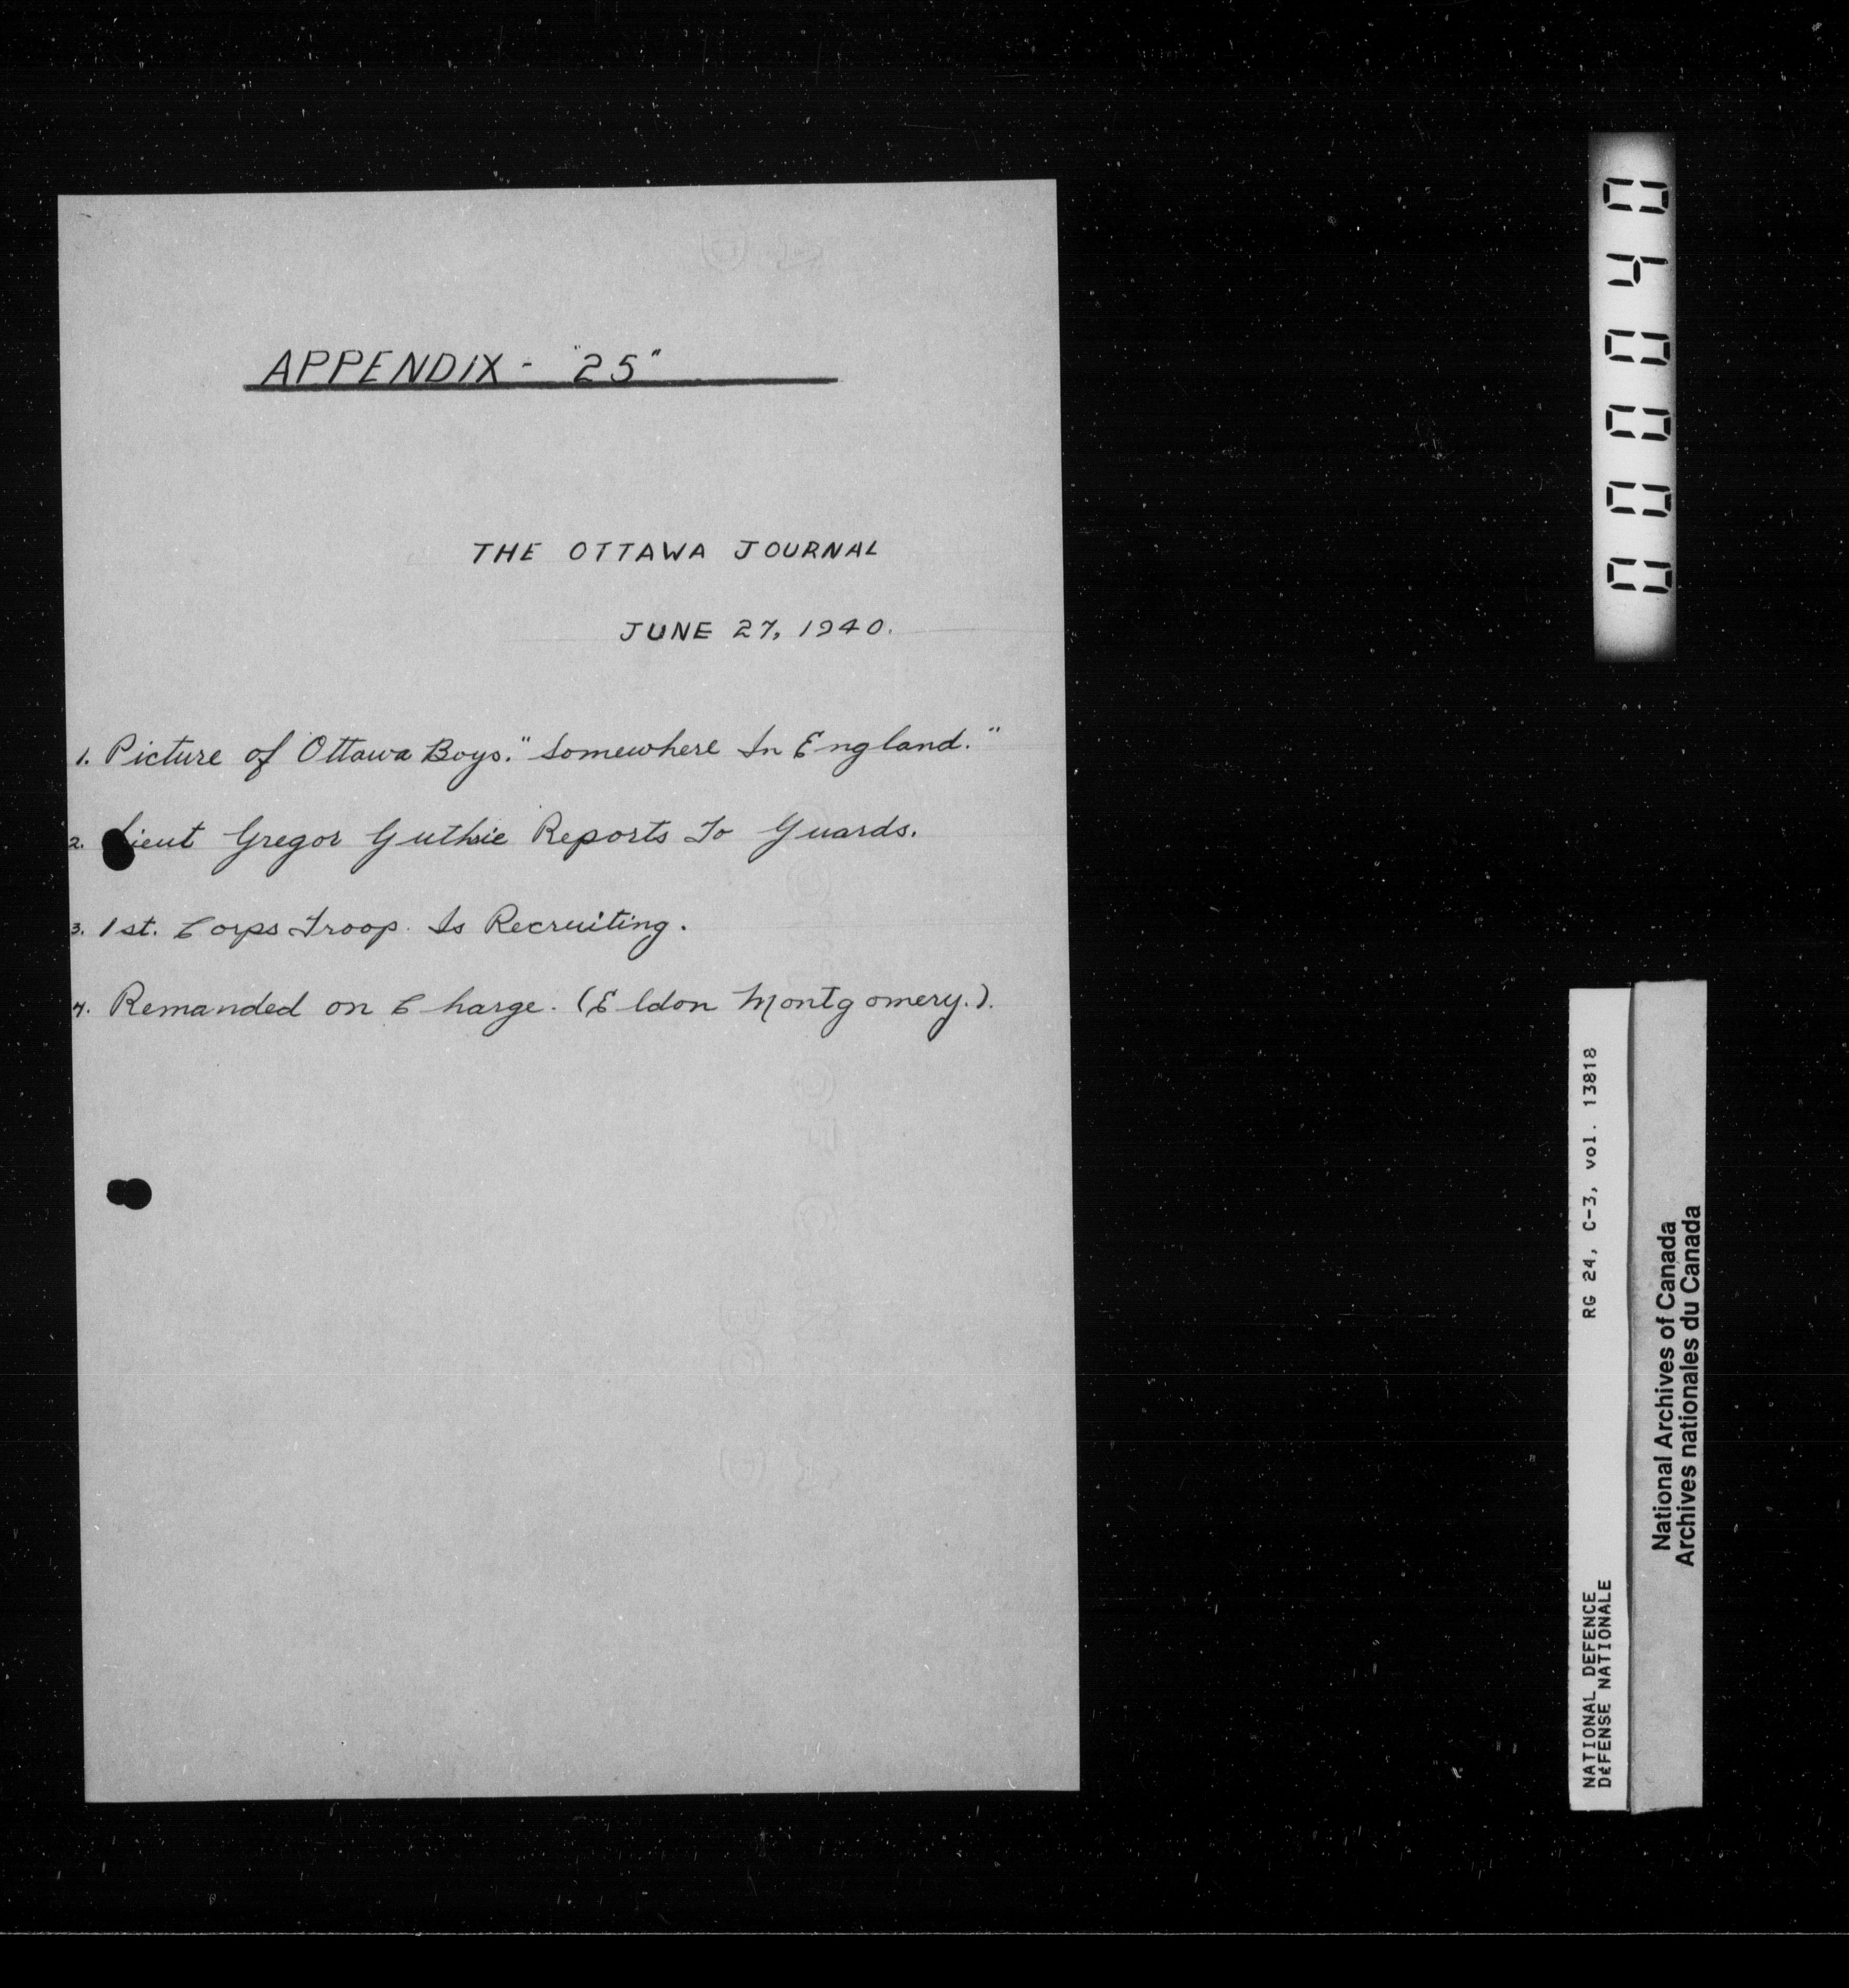 APPENDIX - "25"
THE OTTAWA JOURNAL
JUNE 27, 1940.
1. Picture of Ottawa Boys. "Somewhere In England."
2. Lieut Gregor Guthrie Reports To Guards.
3. 1st. Corps Troop. Is Recruiting.
4. Remanded on Charge. (Eldon Montgomery.).
000040
RG 24, C-3, vol. 13818
NATIONAL DEFENCE
DéFENSE NATIONALE
National Archives of Canada
Archives nationales du Canada